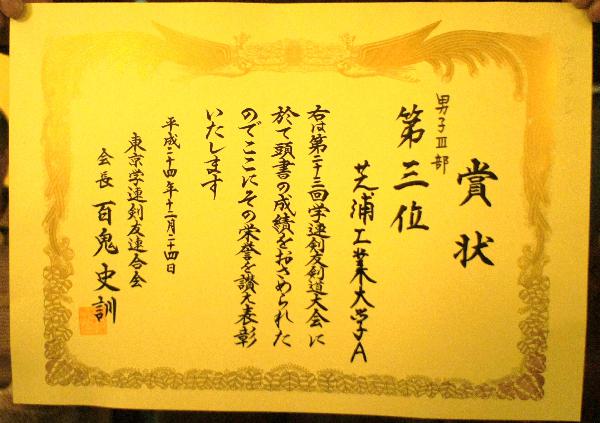 賞状
男子Ⅲ部
第三位
芝浦工業大学A
右は第二十三回学連剣友剣道大会に
於て頭書の成績をおさめられた
のでここにその栄誉を讃え表彰
いたします
平成二十四年十二月二十四日
東京学連剣友連合会
会長 百鬼史訓